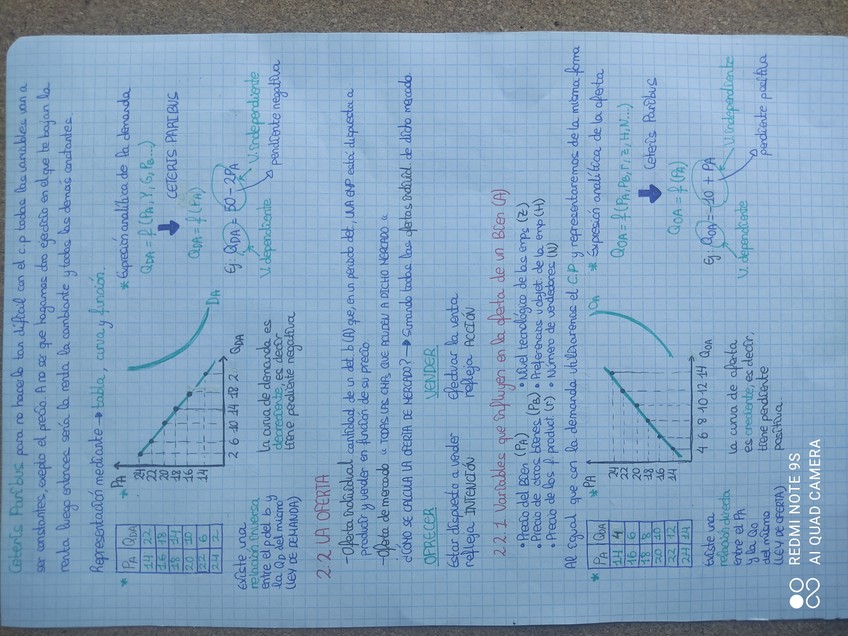 Ceteris Paribus para no hacerlo tan difícil con el c.p todas las variables van a
ser constantes, excepto el precio. A no ser que hagamos otro ejercicio en el que te bajan la
renta luego entonces sería la renta la cambiante y todas las demás constantes.
Representación mediante → tabla, curva y función.
* PA QDA
14 22
16 18
18 14
20 10
22 6
24 2
Existe una
relación inversa
entre el P del b y
la QD del mismo
(LEY DE DEMANDA)
* PA
24
22
20
18
16
14
2 6 10 14 18 2. QDA
DA
La curva de demanda es
decreciente, es decir
tiene pendiente negativa
* Expresión analítica de la demanda
QDA = f (PA, Y, G, PB...)
CETERIS PARIBUS
QDA = f (PA)
Ej: QDA = 50 - 2PA
V. independiente
V. dependiente
pendiente negativa
2.2 LA OFERTA
- Oferta individual cantidad de un det. b (A) que, en un periodo det, UNA EMP está dispuesta a
producir y vender en función de su precio
- Oferta de mercado " TODAS LAS EMPS, QUE ACUDEN A DICHO MERCADO "
¿CÓMO SE CALCULA LA OFERTA DE MERCADO? → Sumando todas las ofertas individ. de dicho mercado
OFRECER
Estar dispuesto a vender
refleja INTENCIÓN
VENDER
efectuar la venta
refleja ACCIÓN
2.2.1 Variables que influyen en la oferta de un Bien (A)
• Precio del Bien (PA)
• Precio de otros bienes (PB)
• Precio de los f. product. (r)
• Nivel tecnológico de las emps (Z)
• Preferencias u objet. de la emp (H)
• Número de vendedores (N)
Al igual que con la demanda utilizaremos el C.P y representaremos de la misma forma
* PA QOA
14 4
16 6
18 8
20 10
22 12
24 14
Existe una
relación directa
entre el PA
y la QO
del mismo
(LEY DE OFERTA)
PA
24
22
20
18
16
14
4 6 8 10 12 14 QOA
OA
La curva de oferta
es creciente, es decir,
tiene pendiente
positiva.
* Expresión analítica de la oferta
QOA = f (PA, PB, r, Z, H, N...)
Ceteris Paribus
QOA = f (PA)
Ej: QOA = -10 + PA
V. independiente
V. dependiente
pendiente positiva
REDMI NOTE 9S
AI QUAD CAMERA